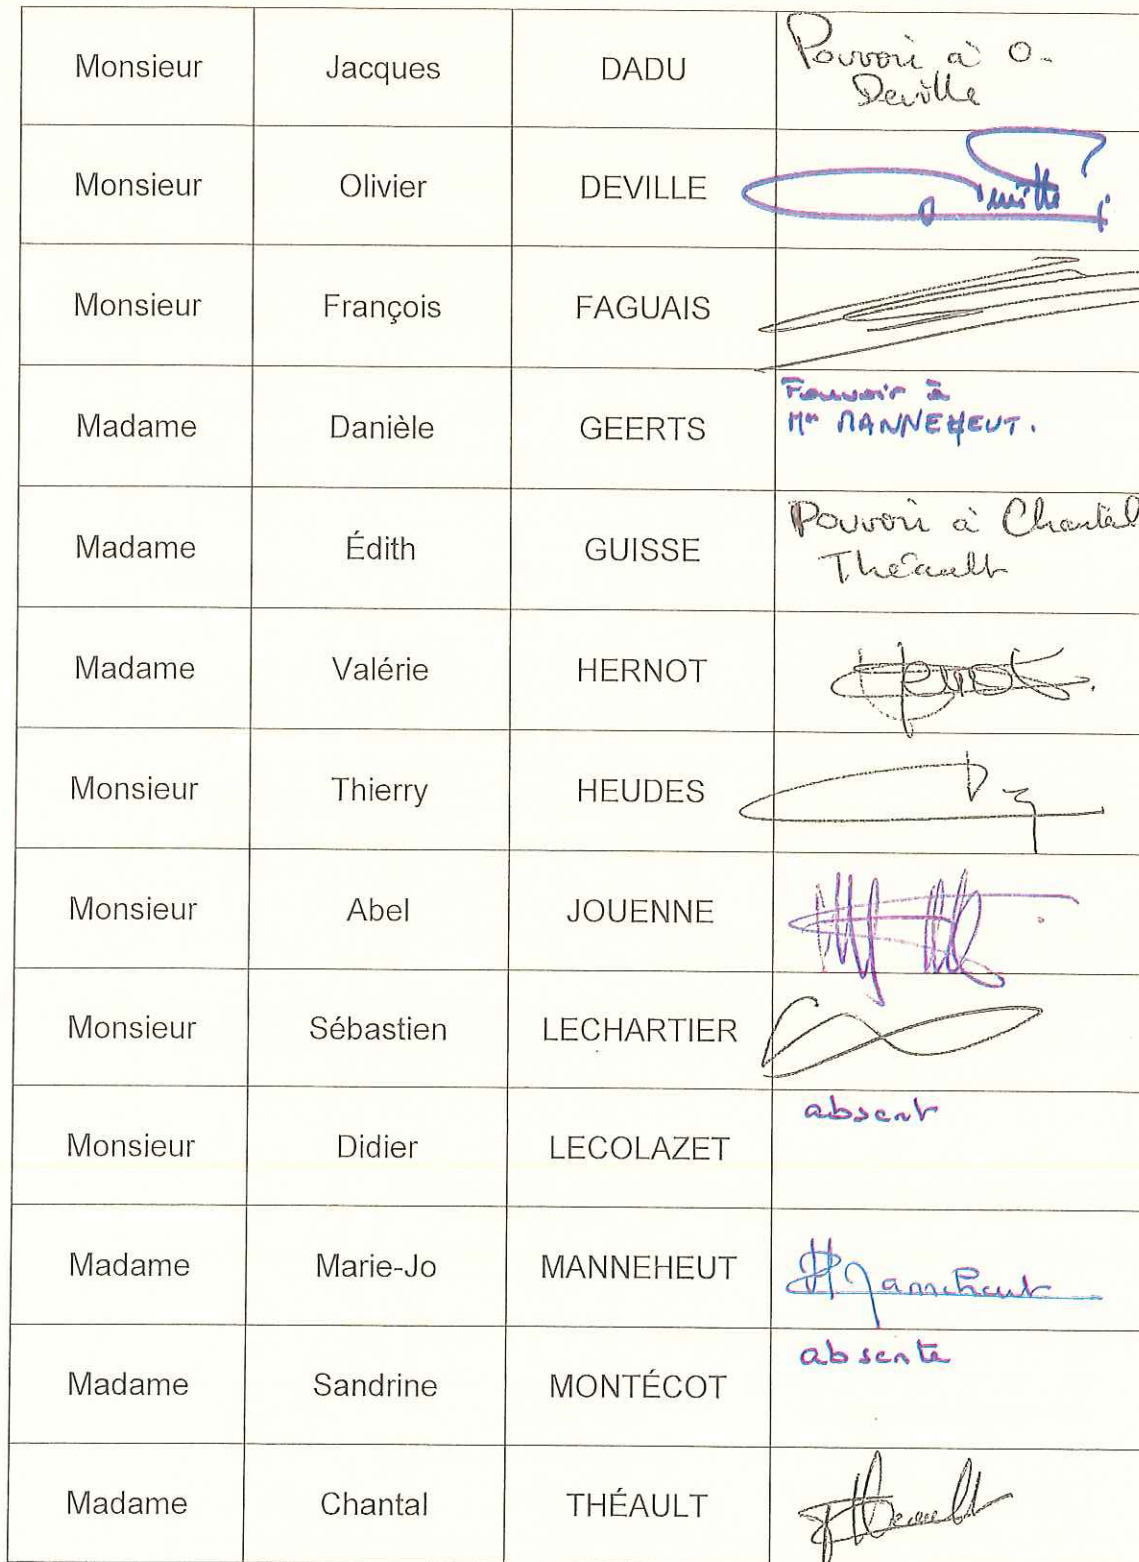 Monsieur Jacques DADU Pouvoir à O.
Deville
Monsieur Olivier DEVILLE
Monsieur François FAGUAIS
Madame Danièle GEERTS Pouvoir à
Mme MANNEHEUT.
Madame Édith GUISSE Pouvoir à Chantal
Théault
Madame Valérie HERNOT
Monsieur Thierry HEUDES
Monsieur Abel JOUENNE
Monsieur Sébastien LECHARTIER
Monsieur Didier LECOLAZET absent
Madame Marie-Jo MANNEHEUT
Madame Sandrine MONTÉCOT absente
Madame Chantal THÉAULT